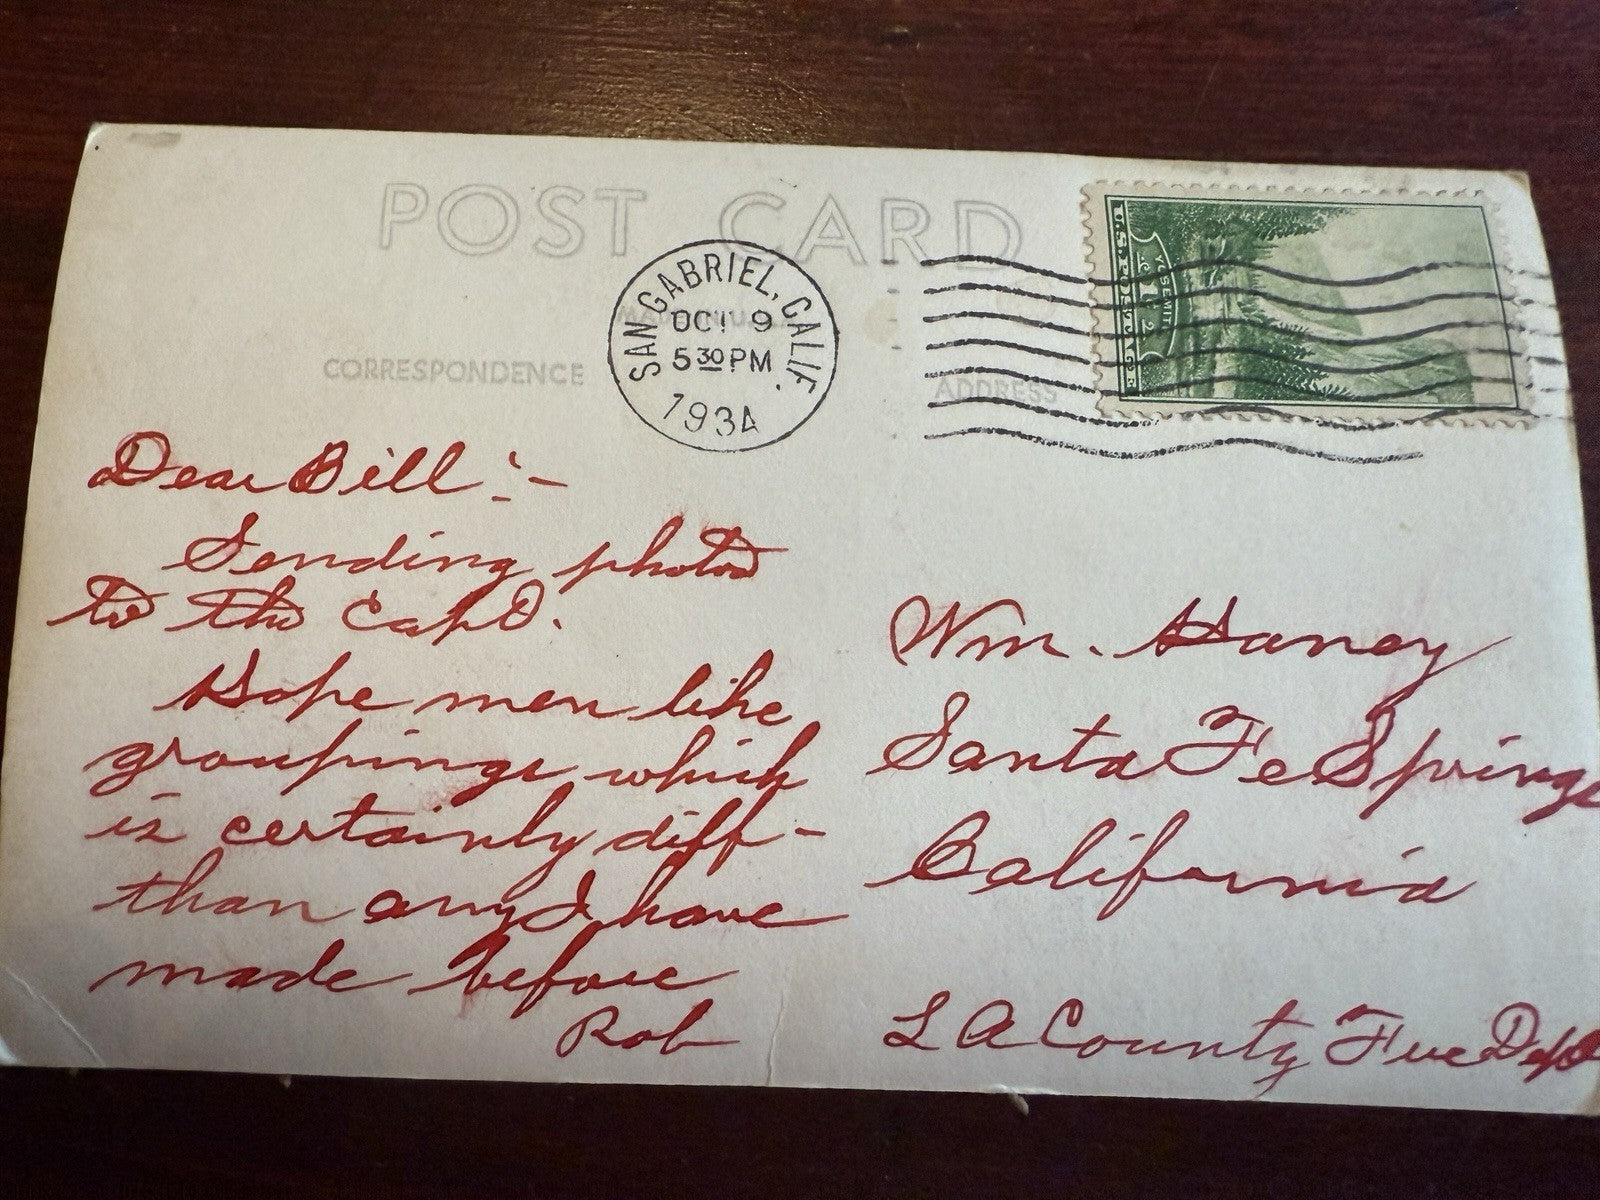 POST CARD
SAN GABRIEL, CALIF.
OCT 9
5 30 PM
1934
U.S. POSTAGE
YOSEMITE
1 c
CORRESPONDENCE
ADDRESS
Dear Bill :-
Sending photos
to the Capt.
Hope men like
groupings which
is certainly diff-
than any I have
made before
Rob
Wm. Haney
Santa Fe Springs
California
L A County Fire Dept